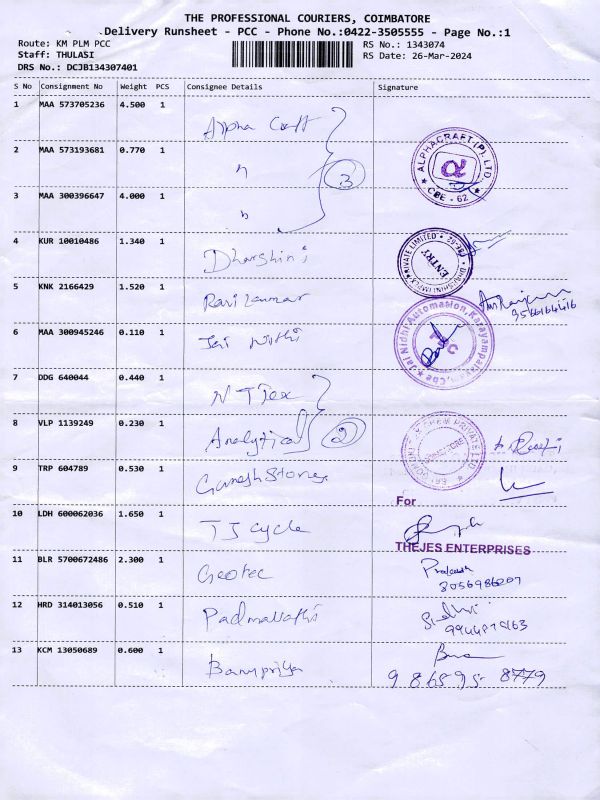 THE PROFESSIONAL COURIERS, COIMBATORE
Delivery Runsheet - PCC - Phone No.:0422-3505555 - Page No.:1
Route: KM PLM PCC RS No.: 1343074
Staff: THULASI RS Date: 26-Mar-2024
DRS No.: DCJB134307401
S No Consignment No Weight PCS Consignee Details Signature
1 MAA 573705236 4.500 1 Alpha Craft
2 MAA 573193681 0.770 1 " 3 ALPHACRAFT (P) LTD. α CBE - 62
3 MAA 300396647 4.000 1 "
4 KUR 10010486 1.340 1 Dharshini PRIVATE LIMITED ENTRY
5 KNK 2166429 1.520 1 Ravikumar
6 MAA 300945246 0.110 1 Jai Nidhi Jai Nidhi Automation, Karayampalayam, Cbe
7 DDG 640044 0.440 1 N T Tex
8 VLP 1139249 0.230 1 Analytical 2 PRIVATE LTD
9 TRP 604789 0.530 1 Ganesh Stones
For
10 LDH 600062036 1.650 1 TJ cycle
THEJES ENTERPRISES
11 BLR 5700672486 2.300 1 Geotec Prakash
12 HRD 314013056 0.510 1 Padmavathi
13 KCM 13050689 0.600 1 Banupriya
98659 8779